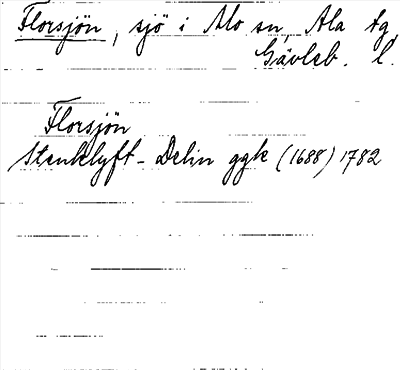 Florsjön, sjö i Mo sn, Ala tg,
Gävleb. l.
Florsjön
Stenklyft - Delin ggk (1688) 1782